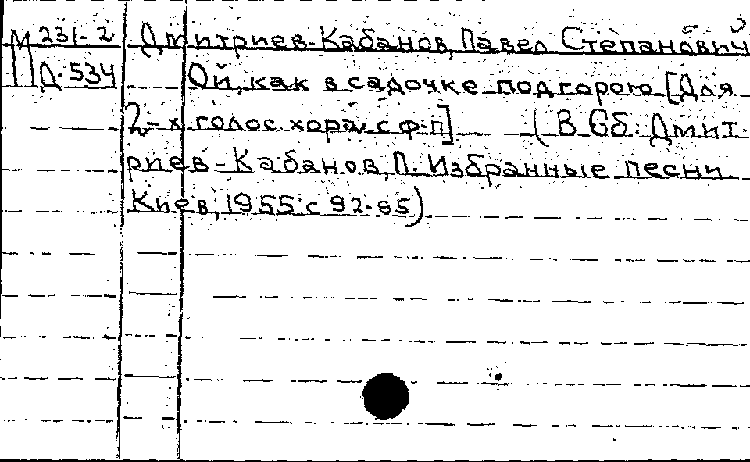 М 231-2 Дмитриев-Кабанов, Павел Степанович
Д-534 Ой, как в садочке под горою [Для
2-х голос хора с ф-п] (В сб: Дмит-
риев-Кабанов, П. Избранные песни
Киев, 1955 с 92-95)